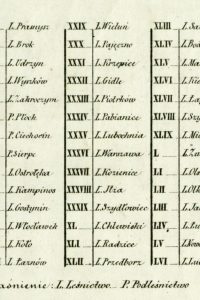 L. Pramysz XXIX L. Wieluń XLIII
L. Brok XXX L. Pajęczno XLIV
L. Udrzyn XXXI L. Krzepice XLV
L. Wyszków XXXII L. Gidle XLVI
L. Zakroczym XXXIII L. Piotrków XLVII
P. Płock XXXIV L. Pabianice XLVIII
P. Ciechocin XXXV L. Lubochnia XLIX
P. Sierpc XXXVI L. Warszawa L
L. Ostrołęka XXXVII L. Kozienice LI
L. Kampinos XXXVIII L. Iłża LII
L. Gostynin XXXIX L. Szydłowiec LIII
L. Włocławek XL L. Chlewiski LIV
L. Koło XLI L. Radzice LV
L. Łaznów XLII L. Przedborz LVI
L. Leśnictwo P. Podleśnictwo